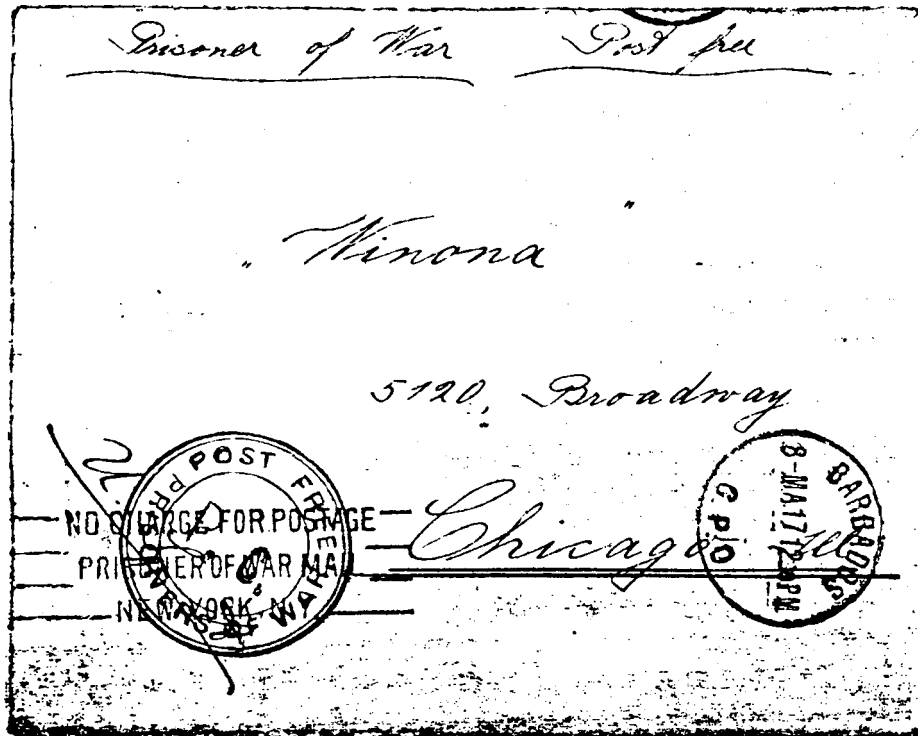 Prisoner of War Post free
"Winona"
5120, Broadway
Chicago Ill
POST FREE
PRISONERS OF WAR
NO CHARGE FOR POSTAGE
PRISONER OF WAR MAIL
NEW YORK, N.
BARBADOS
8-MA 17
G.P.O